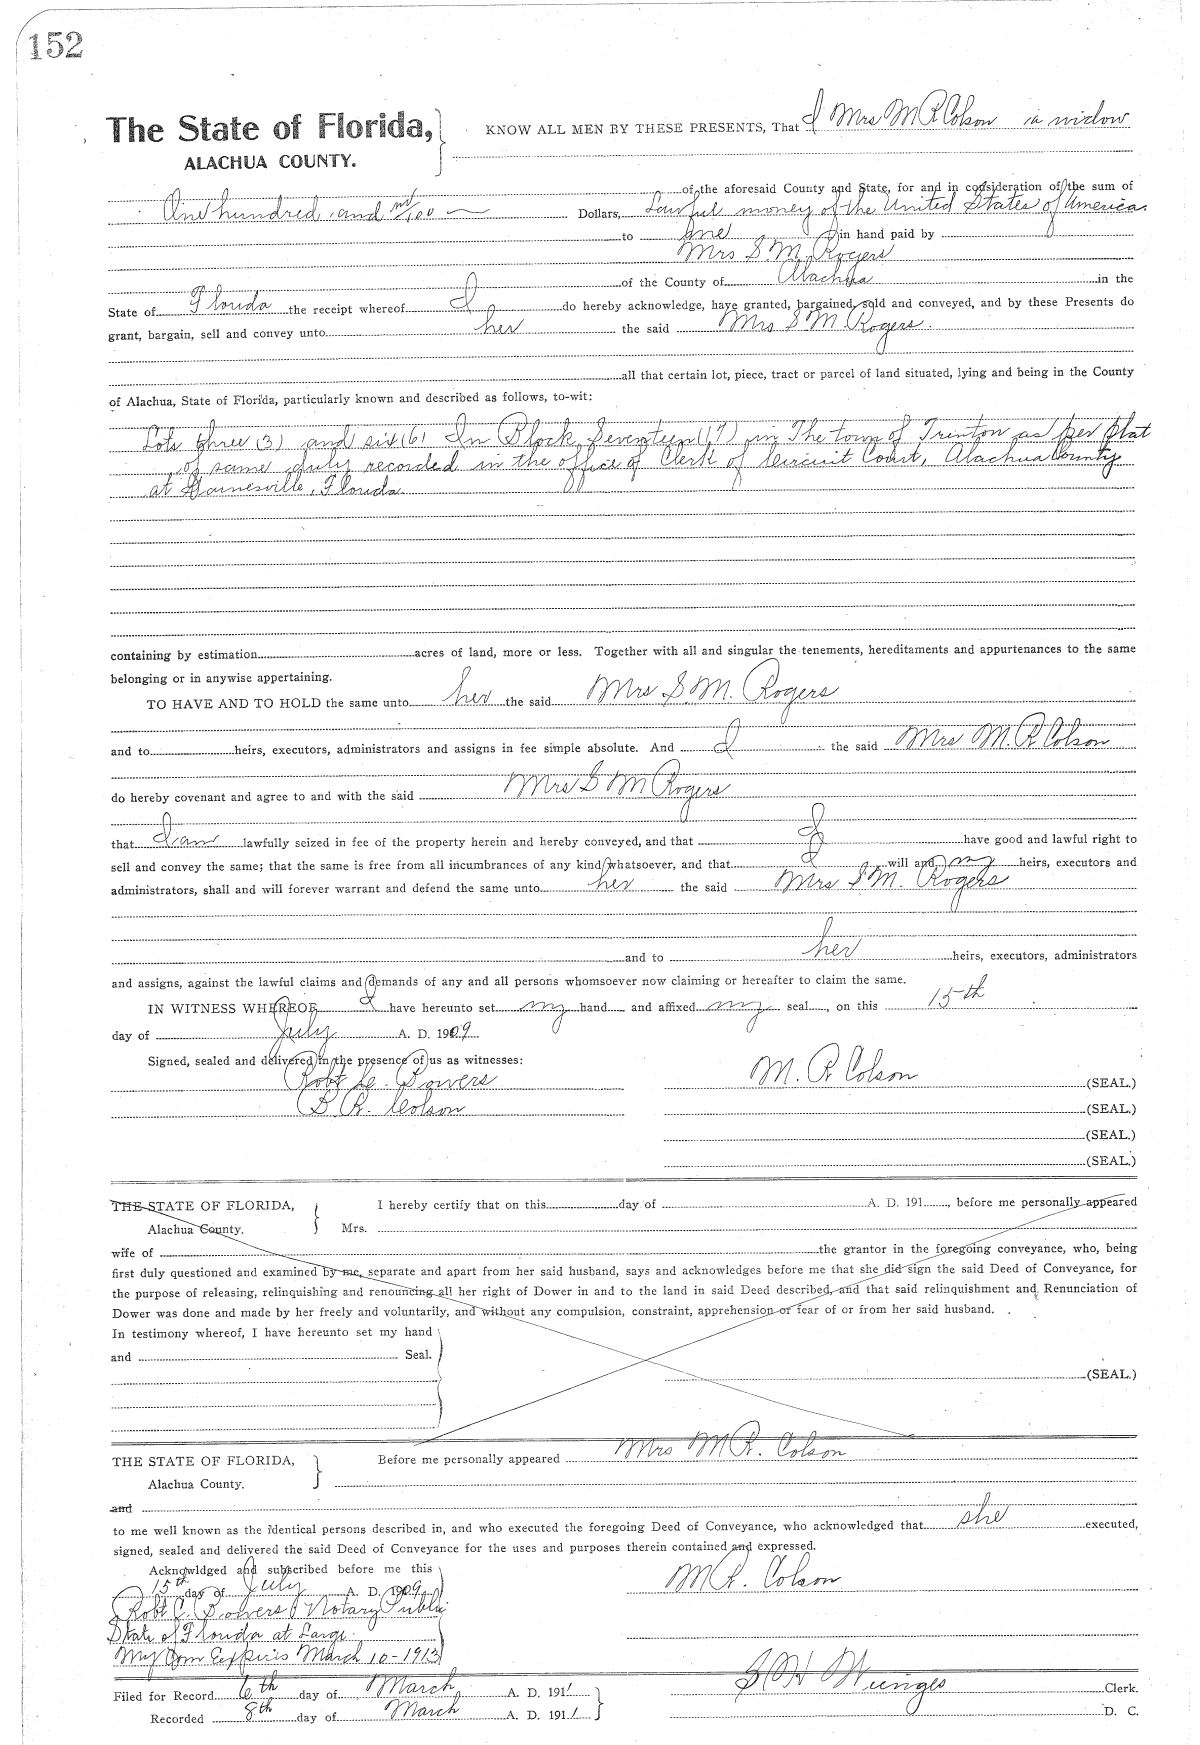 152
The State of Florida, KNOW ALL MEN BY THESE PRESENTS, That I Mrs M R Colson a widow
ALACHUA COUNTY.
of the aforesaid County and State, for and in consideration of the sum of
One hundred and no/100 Dollars, Lawful money of the United States of America
to me in hand paid by
Mrs S M Rogers
of the County of Alachua in the
State of Florida the receipt whereof I do hereby acknowledge, have granted, bargained, sold and conveyed, and by these Presents do
grant, bargain, sell and convey unto her the said Mrs S M Rogers.
all that certain lot, piece, tract or parcel of land situated, lying and being in the County
of Alachua, State of Florida, particularly known and described as follows, to-wit:
Lots three (3) and six (6) In Block Seventeen (17) in The town of Trenton as per plat
of same duly recorded in the office of Clerk of Circuit Court, Alachua County
at Gainesville, Florida
containing by estimation acres of land, more or less. Together with all and singular the tenements, hereditaments and appurtenances to the same
belonging or in anywise appertaining.
TO HAVE AND TO HOLD the same unto her the said Mrs S.M. Rogers
and to heirs, executors, administrators and assigns in fee simple absolute. And I the said Mrs M. R Colson
do hereby covenant and agree to and with the said Mrs S M Rogers
that I am lawfully seized in fee of the property herein and hereby conveyed, and that I have good and lawful right to
sell and convey the same; that the same is free from all incumbrances of any kind whatsoever, and that I will and my heirs, executors and
administrators, shall and will forever warrant and defend the same unto her the said Mrs S M. Rogers
and to her heirs, executors, administrators
and assigns, against the lawful claims and demands of any and all persons whomsoever now claiming or hereafter to claim the same.
IN WITNESS WHEREOF, I have hereunto set my hand and affixed my seal, on this 15th
day of July A. D. 1909.
Signed, sealed and delivered in the presence of us as witnesses:
Robt C. Bowers M. R Colson (SEAL.)
B R. Colson (SEAL.)
(SEAL.)
(SEAL.)
THE STATE OF FLORIDA, I hereby certify that on this day of A. D. 191, before me personally appeared
Alachua County. Mrs.
wife of the grantor in the foregoing conveyance, who, being
first duly questioned and examined by me, separate and apart from her said husband, says and acknowledges before me that she did sign the said Deed of Conveyance, for
the purpose of releasing, relinquishing and renouncing all her right of Dower in and to the land in said Deed described, and that said relinquishment and Renunciation of
Dower was done and made by her freely and voluntarily, and without any compulsion, constraint, apprehension or fear of or from her said husband.
In testimony whereof, I have hereunto set my hand
and Seal.
(SEAL.)
THE STATE OF FLORIDA, Before me personally appeared Mrs M R. Colson
Alachua County.
and
to me well known as the identical persons described in, and who executed the foregoing Deed of Conveyance, who acknowledged that she executed,
signed, sealed and delivered the said Deed of Conveyance for the uses and purposes therein contained and expressed.
Acknowldged and subscribed before me this
15th day of July A. D. 1909 M R. Colson
Robt C. Bowers Notary Public
State of Florida at Large.
My Com Expires March 10-1913
Filed for Record 6th day of March A. D. 1911 S H Wienges Clerk.
Recorded 8th day of March A. D. 1911 D. C.